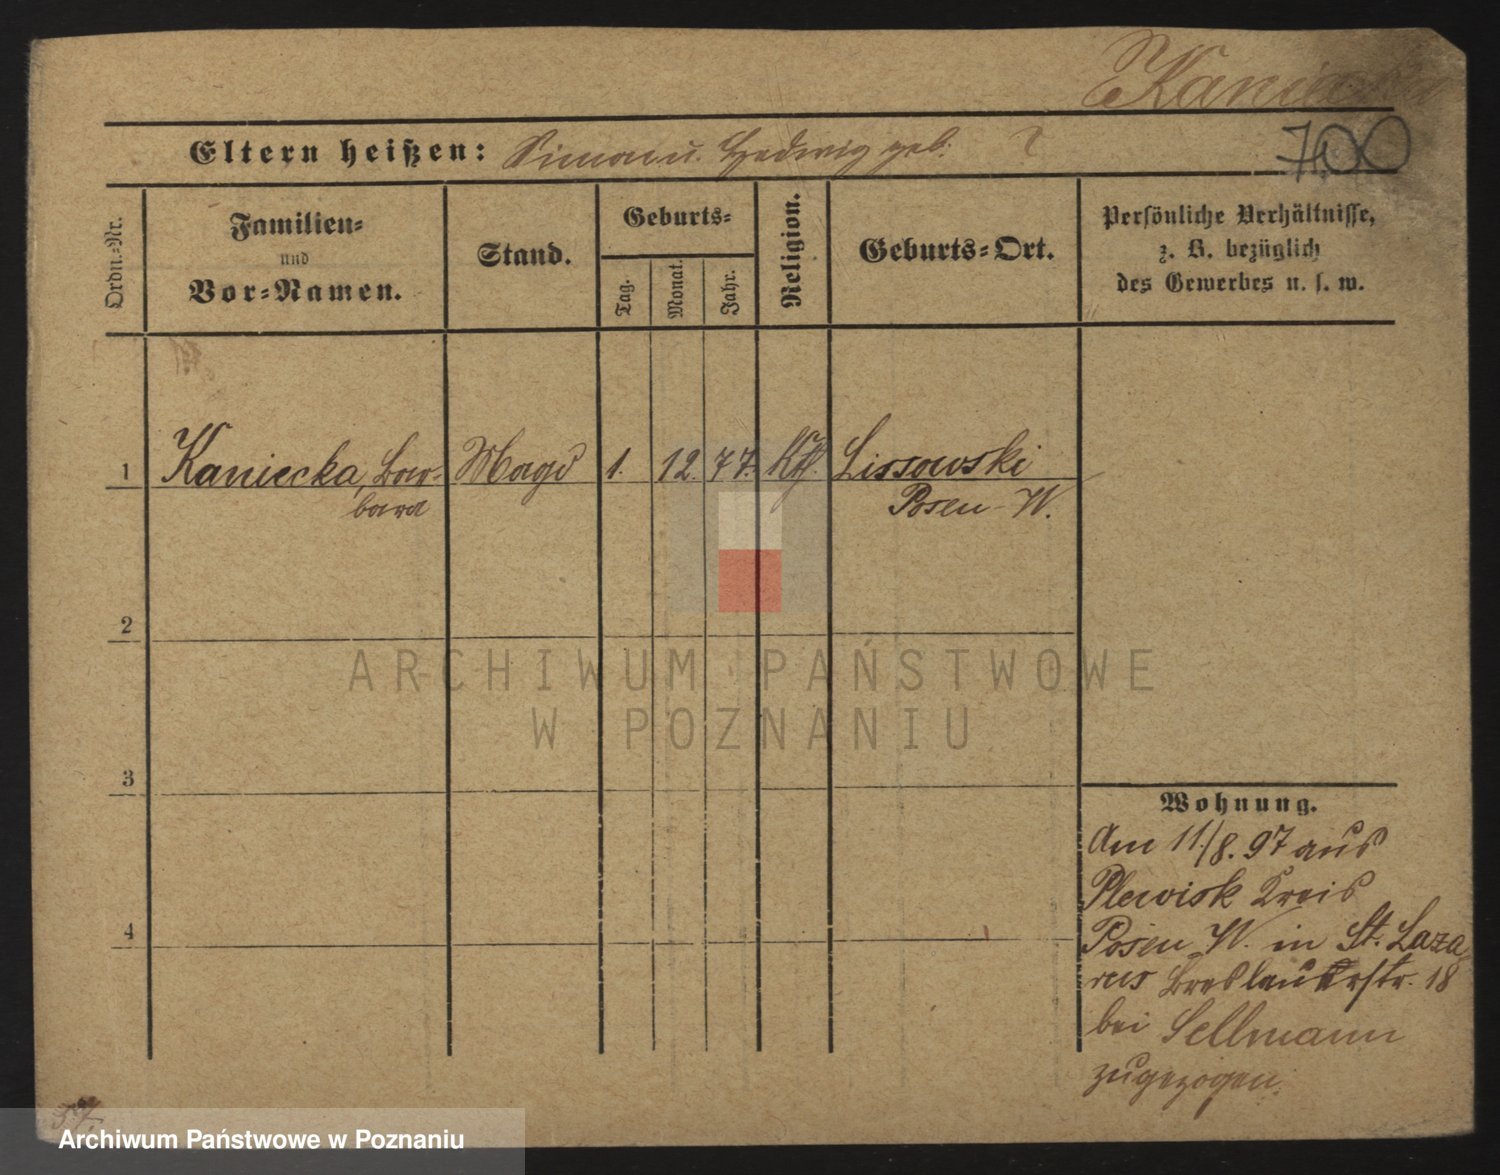 Kaniecka
700
Eltern heißen: Simon u. Hedwig geb. ?
Ordn.-Nr.
Familien-
und
Vor-Namen.
Stand.
Geburts-
Tag.
Monat.
Jahr.
Religion.
Geburts-Ort.
Persönliche Verhältnisse,
z. B. bezüglich
des Gewerbes u. s. w.
1 Kaniecka, Bar- Magd 1. 12. 77. Kth. Lissowski
bara Posen - W.
2
3
4
Wohnung.
Am 11./8. 97 aus
Plewisk Kreis
Posen W. in St. Laza
rus Breslauerstr. 18
bei Sellmann
zugezogen.
57.
ARCHIWUM PAŃSTWOWE
W POZNANIU
Archiwum Państwowe w Poznaniu